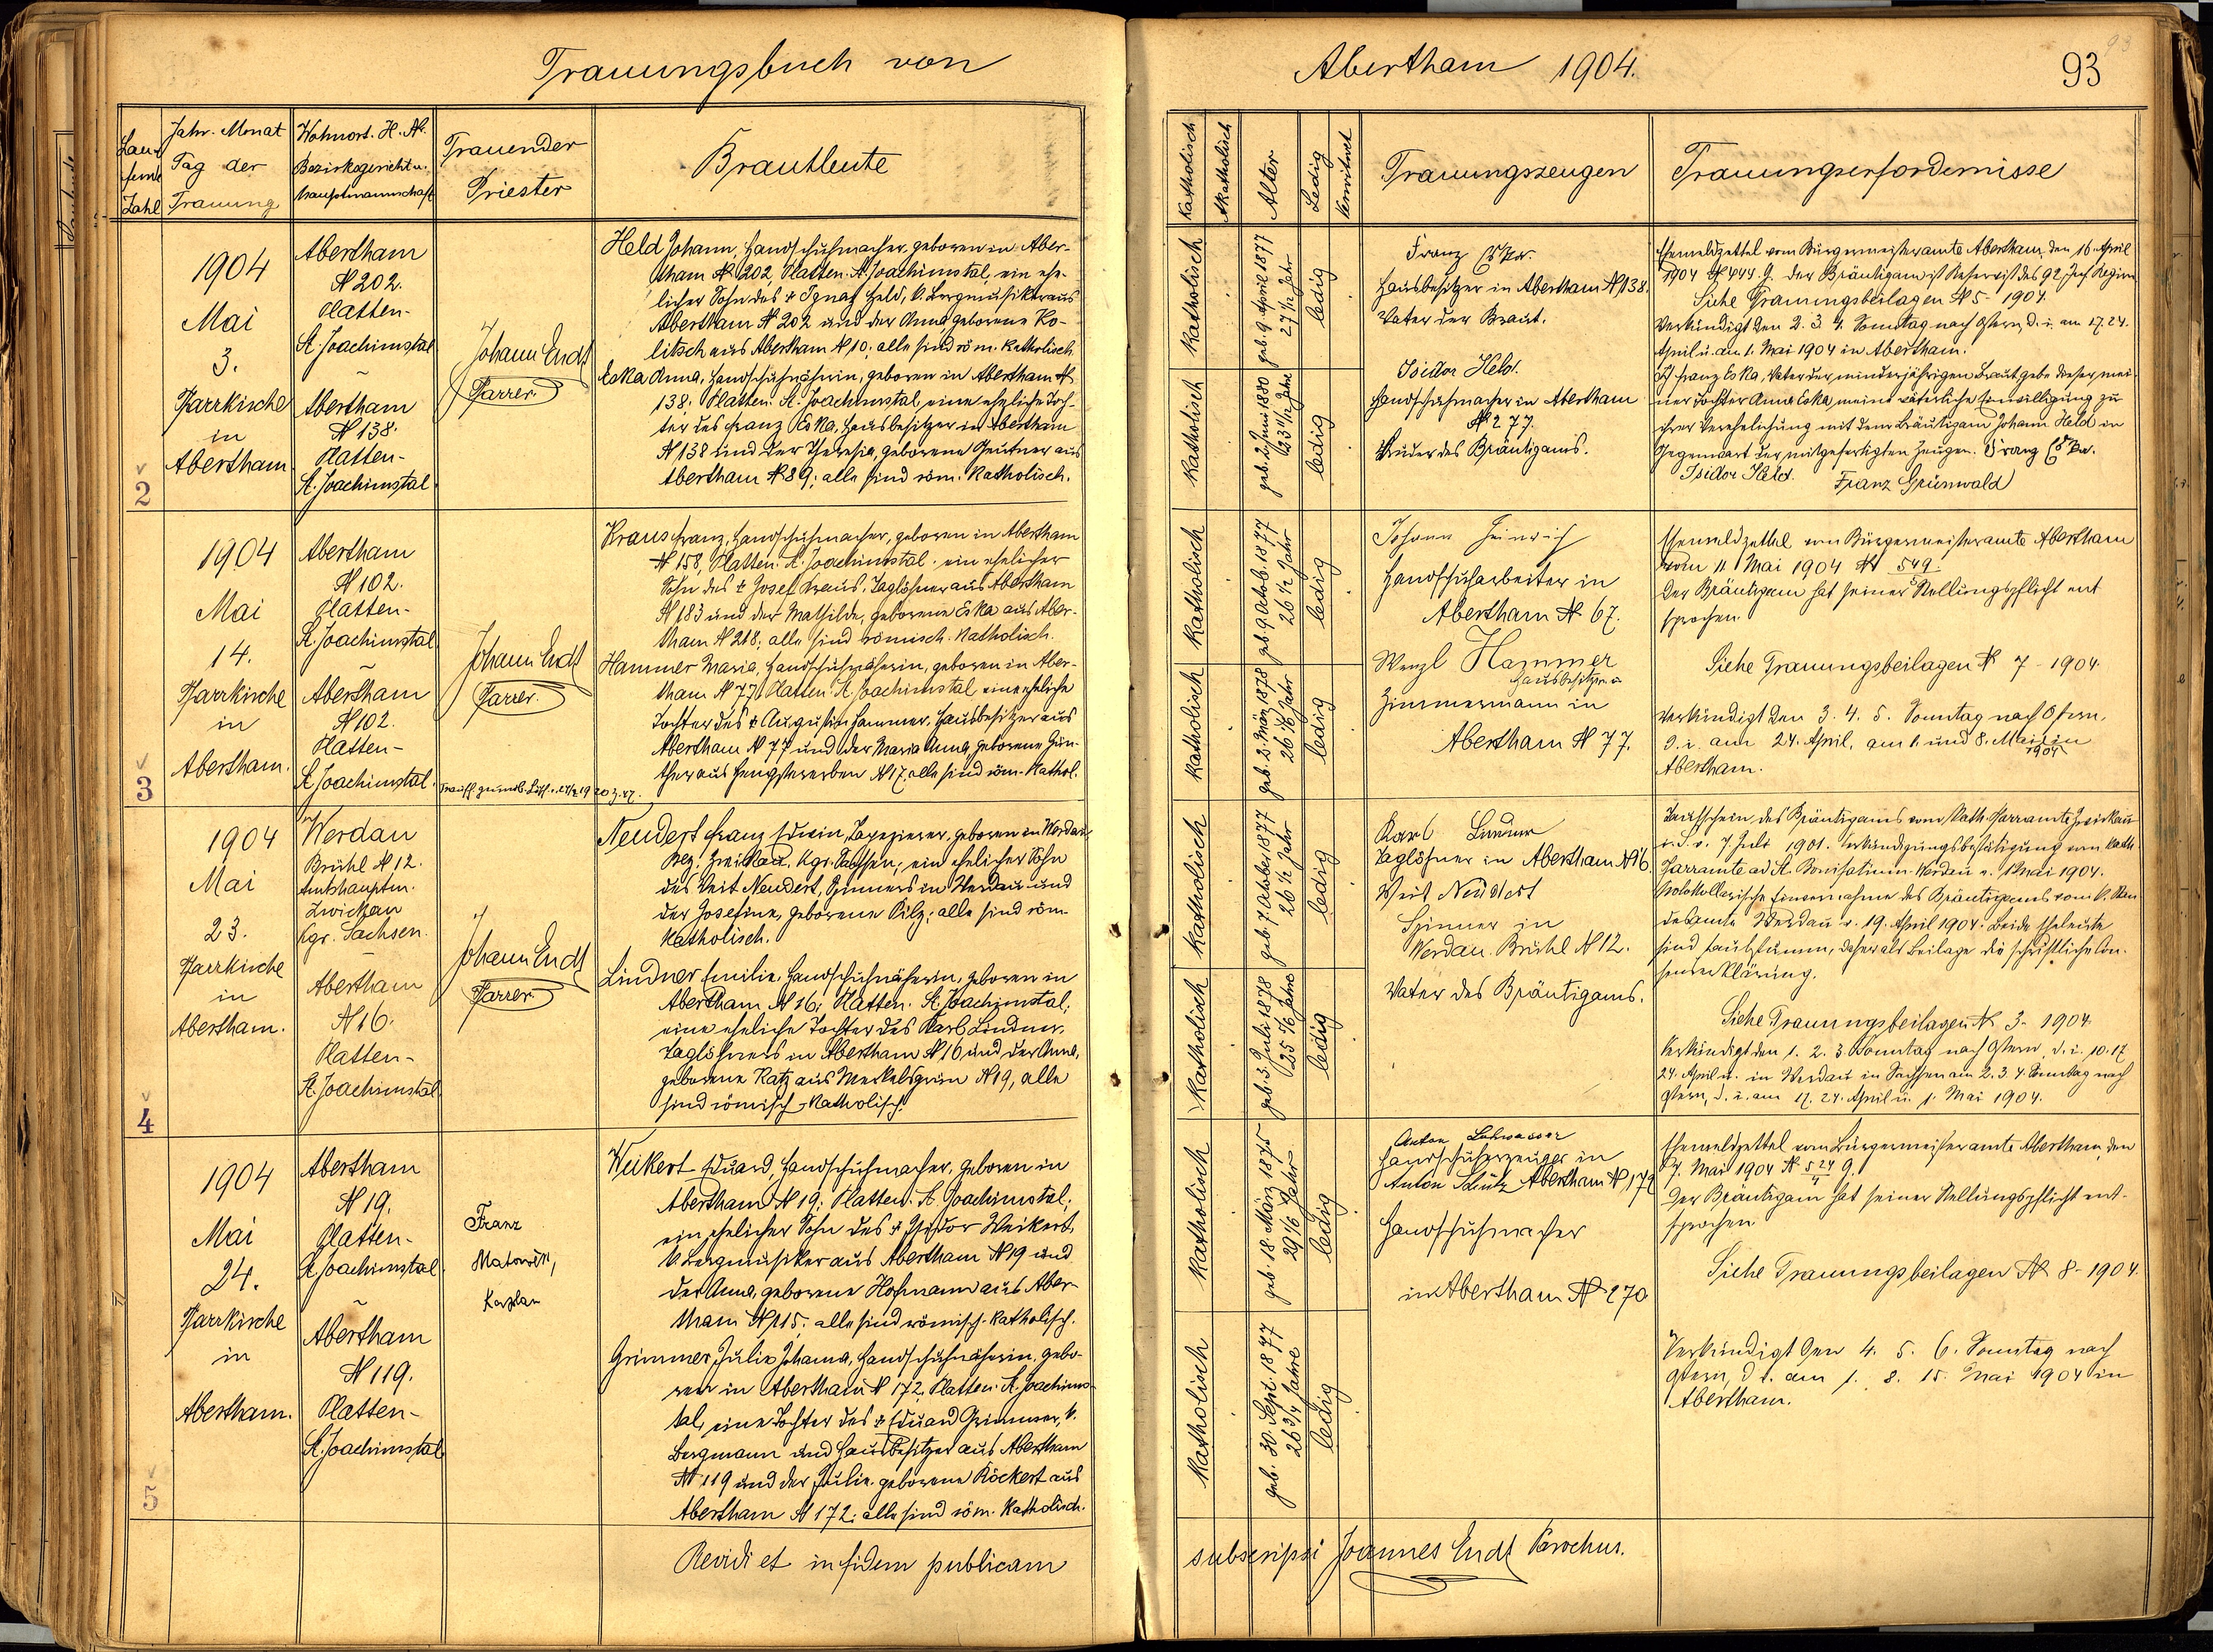 Trauungsbuch von
Laufende Zahl
Jahr. Monat
Tag der
Trauung
Wohnort. H. N.
Bezirksgericht u.
Hauptmannschaft
Trauender
Priester
Brautleute
2
1904
Mai
3.
Pfarrkirche
in
Abertham
Abertham
N 202.
Platten-
St. Joachimstal
Abertham
N 138.
Platten-
St. Joachimstal
Johann Endt
Pfarrer
Held Johann, Handschuhmacher, geboren in Aber-
tham N 202, Platten. St. Joachimstal, ein ehe-
licher Sohn des † Ignaz Held, k. Bergmusiker aus
Abertham N 202 und der Anna geborene Ko-
litsch aus Abertham N 10; alle sind röm. katholisch
Eska Anna, Handschuhnäherin, geboren in Abertham N
138. Platten. St. Joachimstal, eine eheliche Toch-
ter des Franz Eska, Hausbesitzer in Abertham
N 138 und der Theresia, geborene Geutner aus
Abertham N 89; alle sind röm. katholisch.
3
1904
Mai
14.
Pfarrkirche
in
Abertham.
Abertham
N 102.
Platten-
St. Joachimstal
Abertham
N 102.
Platten-
St. Joachimstal.
Johann Endt
Pfarrer.
Kraus Franz, Handschuhmacher, geboren in Abertham
N 158, Platten. St. Joachimstal. ein ehelicher
Sohn des † Josef Kraus, Taglöhner aus Abertham
N 183 und der Mathilde, geborene Eska aus Aber-
tham N 218; alle sind römisch-katholisch.
Hammer Maria, Handschuhnäherin, geboren in Aber-
tham N 77, Platten St. Joachimstal eine eheliche
Tochter des † Augustin Hammer, Hausbesitzer aus
Abertham N 77 und der Maria Anna, geborene Gün-
ther aus Hengstererben N 17, alle sind röm. kathol.
4
1904
Mai
23.
Pfarrkirche
in
Abertham.
Werdau
Brühl N 12.
Amtshauptm.
Zwickau
Kgr. Sachsen.
Abertham
N 16.
Platten-
St. Joachimstal
Johann Endt
Pfarrer
Neudert Franz Edwin, Tapezierer, geboren in Werdau
Bez. Zwickau, Kgr. Sachsen; ein ehelicher Sohn
des Veit Neudert, Spinners in Werdau und
der Josefine, geborene Pilz; alle sind röm
katholisch.
Lindner Emilie, Handschuhnäherin, geboren in
Abertham N 16; Platten. St. Joachimstal;
eine eheliche Tochter des Karl Lindner,
Taglöhners in Abertham N 16 und der Anna,
geborene Katz aus Merkelsgrün N 19, alle
sind römisch-katholisch.
5
1904
Mai
24.
Pfarrkirche
in
Abertham.
Abertham
N 19.
Platten-
St. Joachimstal
Abertham
N 119.
Platten-
St. Joachimstal
Franz
Kaplan
Weikert Eduard, Handschuhmacher, geboren in
Abertham N 19; Platten. St. Joachimstal;
ein ehelicher Sohn des † Isidor Weikert,
k. Bergmusiker aus Abertham N 19 und
der Anna, geborene Hofmann aus Aber-
tham N 115; alle sind römisch-katholisch.
Grimmer Julie Johanna, Handschuhnäherin, gebo-
ren in Abertham N 172, Platten. St. Joachims-
tal, eine Tochter des † Eduard Grimmer, k.
Bergmann und Hausbesitzer aus Abertham
N 119 und der Julie, geborene Röckert aus
Abertham N 172; alle sind röm. katholisch.
Revidi et in fidem publicam
Abertham 1904.
93
Katholisch
Akatholisch
Alter
Ledig
Verwitwet
Trauungszeugen
Trauungserfordernisse
Katholisch
geb. 9. April 1877
27 1/12 Jahr
ledig
Katholisch
geb. 2. Juni 1880
23 11/12 Jahre
ledig
Franz Eska.
Hausbesitzer in Abertham N 138.
Vater der Braut.
Isidor Held.
Handschuhmacher in Abertham
N 277.
Bruder des Bräutigams.
Ehemeldzettel vom Bürgermeisteramte Abertham, den 16. April
1904 N 444. G. der Bräutigam ist Reservist des 92. Inf. Regim
Siehe Trauungsbeilagen N 5 - 1904
Verkündigt den 2. 3. 4. Sonntag nach Ostern, d. i. am 17. 24.
April u. am 1. Mai 1904 in Abertham.
Ich Franz Eska, Vater der minderjährigen Braut gebe dieser, mei-
ner Tochter Anna Eska, meine väterliche Einwilligung zu
ihrer Verehelichung mit dem Bräutigam Johann Held in
Gegenwart der mitgefertigten Zeugen. Franz Eska.
Isidor Held. Franz Grünwald
Katholisch
geb. 9. Octob. 1877
26 1/2 Jahr
ledig
Katholisch
geb. 2. März 1878
26 1/6 Jahr
ledig
Johann Heinrich
Handschuharbeiter in
Abertham N 67.
Wenzl Hammer
Hausbesitzer u
Zimmermann in
Abertham N 77.
Ehemeldzettel vom Bürgermeisteramte Abertham
vom 11 Mai 1904 N 549.
Der Bräutigam hat seiner Stellungspflicht ent
sprochen.
Siehe Trauungsbeilagen N 7 - 1904.
Verkündigt den 3. 4. 5. Sonntag nach Ostern,
d. i. am 24. April, am 1. und 8. Mai in
1904
Abertham.
Katholisch
geb. 7. October 1877
26 1/2 Jahr
ledig
Katholisch
geb. 3. Juli 1878
25 5/6 Jahre
ledig
Karl Lindner
Taglöhner in Abertham N 16.
Veit Neudert
Spinner in
Werdau. Brühl N 12.
Vater des Bräutigams.
Taufschein des Bräutigams vom Kath. Pfarramte Zwickau
i. S. v. 7. Juli 1901. Verkündigungsbestätigung vom kath.
Pfarramte ad St. Bonifatium Werdau v. 1 Mai 1904.
Protokollarische Einvernahme des Bräutigams vom k. Stan
desamte Werdau v. 19. April 1904. Beide Eheleute
sind taubstumm, daher als Beilage die schriftliche Con-
senserklärung.
Siehe Trauungsbeilagen N 3 - 1904
Verkündigt den 1. 2. 3. Sonntag nach Ostern, d. i. 10. 17
24. April u. in Werdau in Sachsen am 2. 3. 4. Sonntag nach
Ostern, d. i. am 17. 24. April u. 1. Mai 1904.
Katholisch
geb. 18. März 1875
29 1/6 Jahr
ledig
Katholisch
geb. 30. Sept. 1877
26 3/4 Jahre
ledig
Anton Lohwasser
Handschuherzeuger in
Anton Schütz Abertham N 179
Handschuhmacher
in Abertham N 270
Ehemeldzettel vom Bürgermeisteramte Abertham, den
7. Mai 1904 N 524 G.
Der Bräutigam hat seiner Stellungspflicht ent-
sprochen
Siehe Trauungsbeilagen N 8 - 1904.
Verkündigt den 4. 5. 6. Sonntag nach
Ostern, d. i. am 1. 8. 15. Mai 1904 in
Abertham.
subscripsi Joannes Endt Parochus.